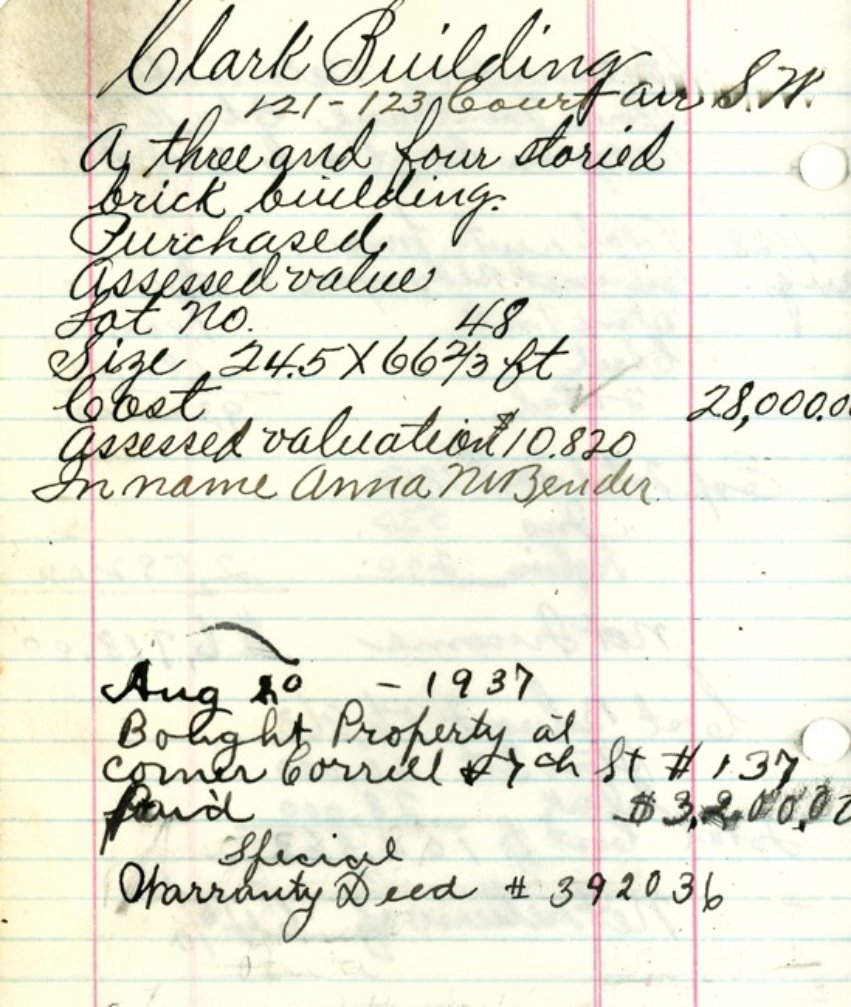 Clark Building
121-123 Court ave S.W.
A three and four storied
brick building.
Purchased
Assessed value
Lot No. 48
Size 24.5 X 66 2/3 ft
Cost 28,000.00
Assessed valuation $10.820
In name Anna M Bender
Aug 20 - 1937
Bought Property at
corner Correll & 7th St # 137
Paid $3,200.00
Special
Warranty Deed # 392036